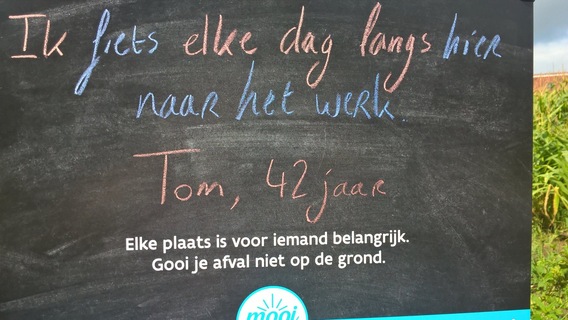 Ik fiets elke dag langs hier
naar het werk.
Tom, 42 jaar
Elke plaats is voor iemand belangrijk.
Gooi je afval niet op de grond.
mooi